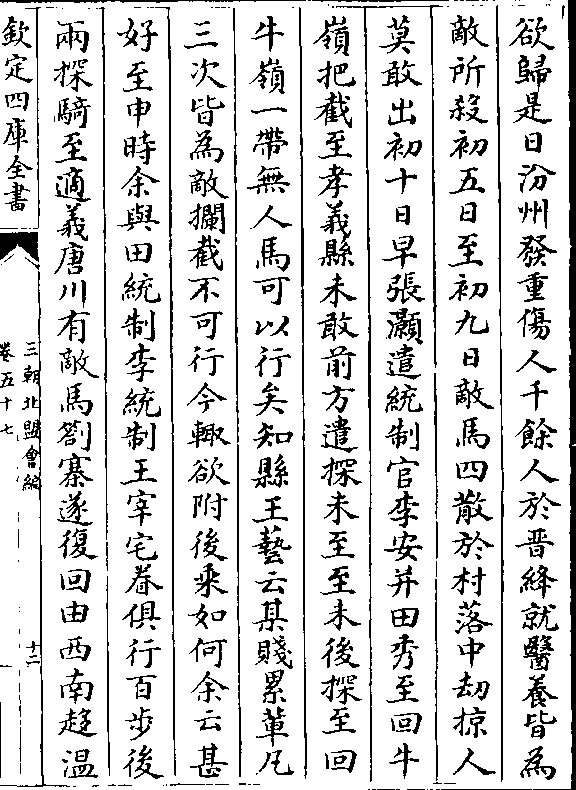 欲歸是日汾州發重傷人千餘人於晋絳就醫養皆為
敵所殺初五日至初九日敵馬四散於村落中劫掠人
莫敢出初十日早張灝遣統制官李安并田秀至回牛
嶺把截至孝義縣未敢前方遣探未至至未後探至回
牛嶺一帶無人馬可以行矣知縣王藝云某賤累輩凡
三次皆為敵攔截不可行今輙欲附後乘如何余云甚
好至申時余與田統制李統制王宰宅眷俱行百步後
兩探騎至適義唐川有敵馬劄寨遂復回由西南趍温
欽定四庫全書
三朝北盟會編
卷五十七
十二